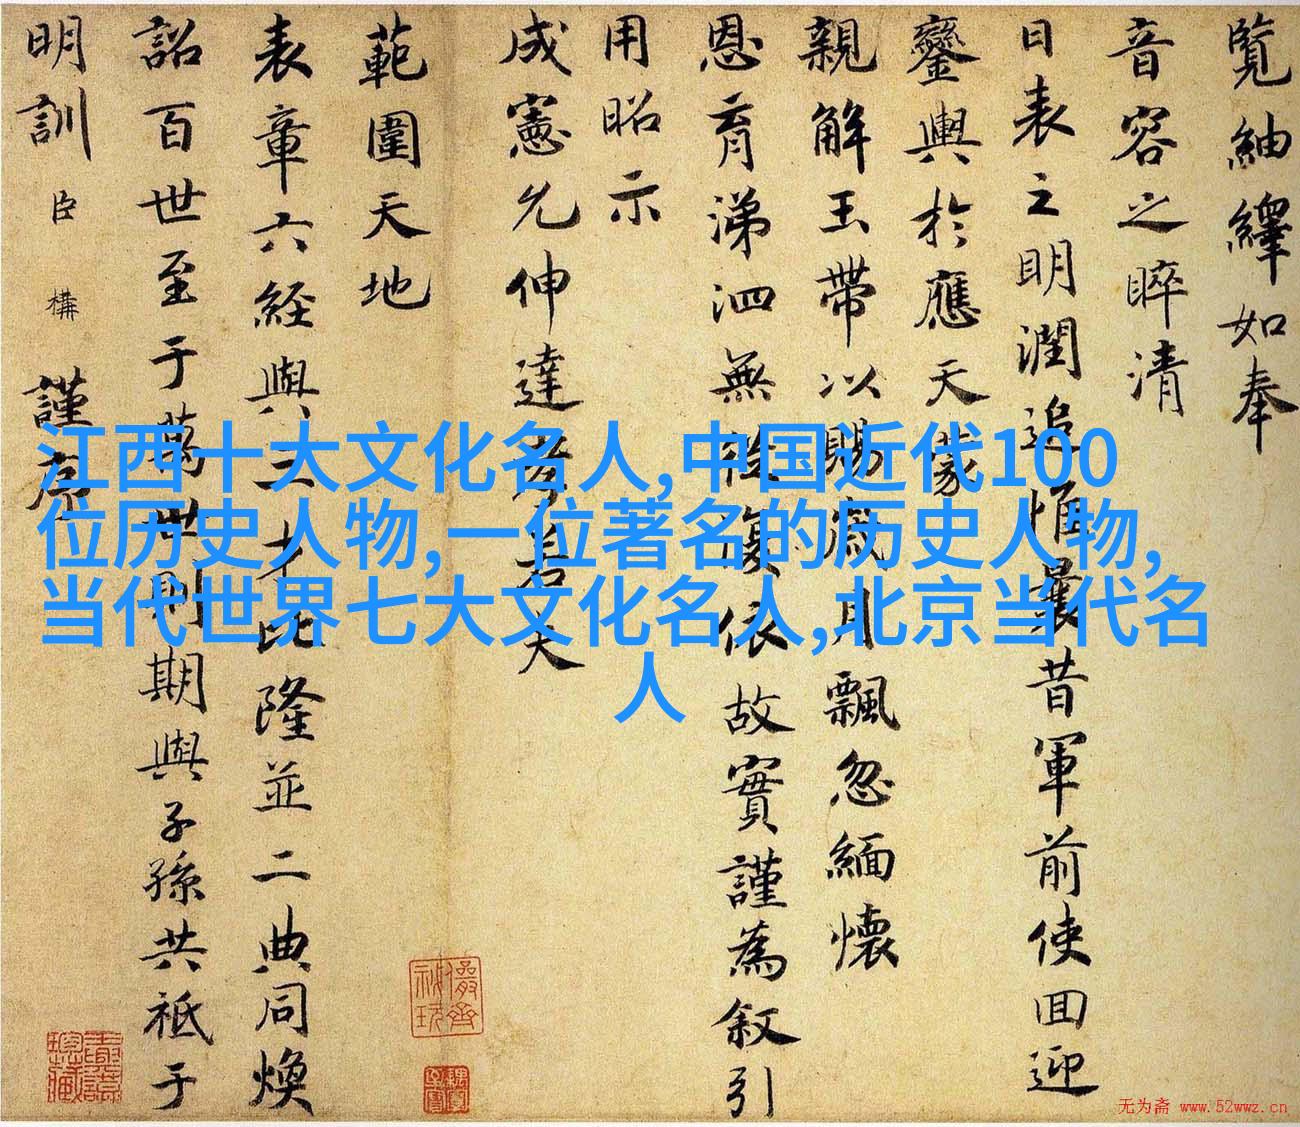 覽紬繹如奉
音容之睟清
日表之明潤追惟曩昔軍前使回迎
鑾輿於應天蒙
親解玉帶以賜歲月飄忽緬懷
恩育涕泗無從復依故實謹為叙引
用昭示
成憲允伸達孝若夫
範圍天地
表章六経與三才比隆並二典同煥
詔百世至于萬世則期與子孫共祗于
明訓臣構謹序
江西十大文化名人,中国近代100
位历史人物,一位著名的历史人物,
当代世界七大文化名人,北京当代名
人
无为斋 www.52wwz.cn